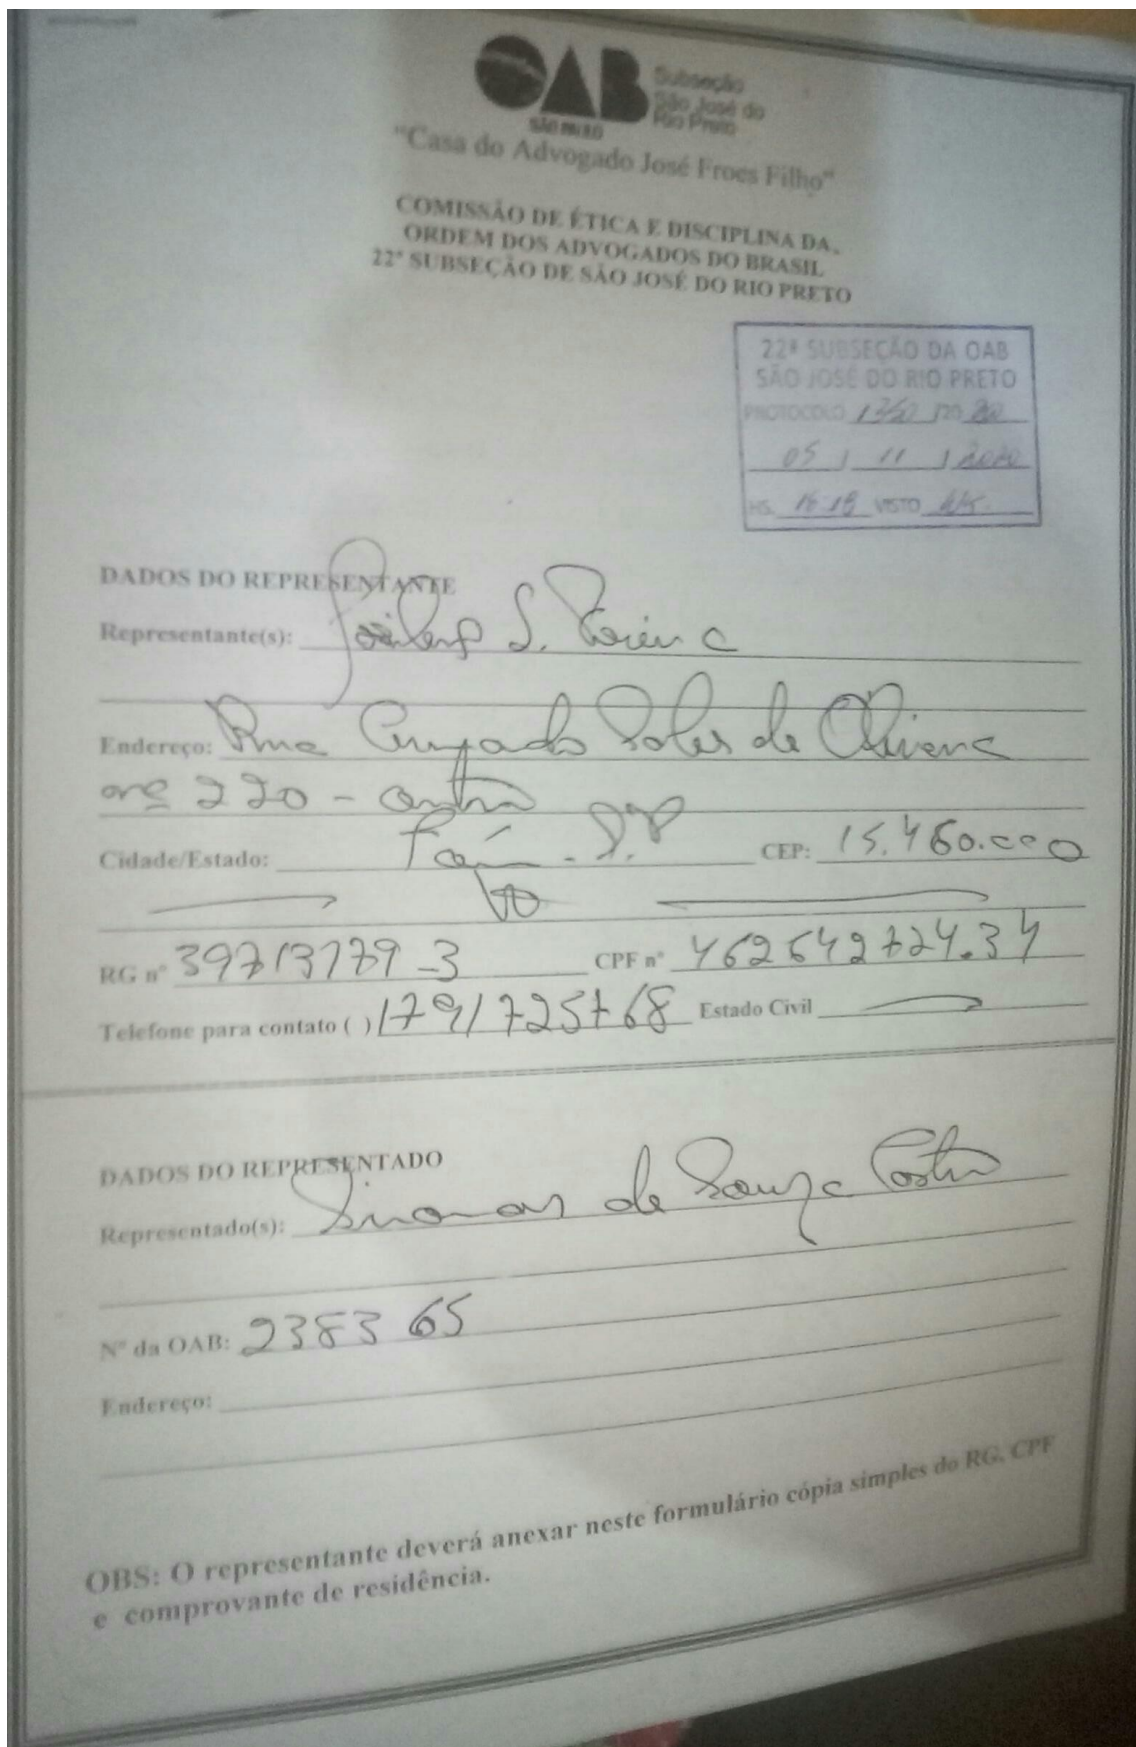 OAB
SÃO PAULO
Subseção
São José do
Rio Preto
"Casa do Advogado José Froes Filho"
COMISSÃO DE ÉTICA E DISCIPLINA DA
ORDEM DOS ADVOGADOS DO BRASIL
22ª SUBSEÇÃO DE SÃO JOSÉ DO RIO PRETO
22ª SUBSEÇÃO DA OAB
SÃO JOSÉ DO RIO PRETO
PROTOCOLO /20 20
05 / 11 / 2020
HS. 16:18 VISTO
DADOS DO REPRESENTANTE
Representante(s): S.
Endereço: Rua Soles de Oliveira
nº 220 - centro
Cidade/Estado: S.P CEP: 15.460.000
RG nº 39713779-3 CPF nº 462642724.34
Telefone para contato ( ) 17 91725768 Estado Civil
DADOS DO REPRESENTADO
Representado(s): de Souza Costa
Nº da OAB: 238365
Endereço:
OBS: O representante deverá anexar neste formulário cópia simples do RG, CPF
e comprovante de residência.